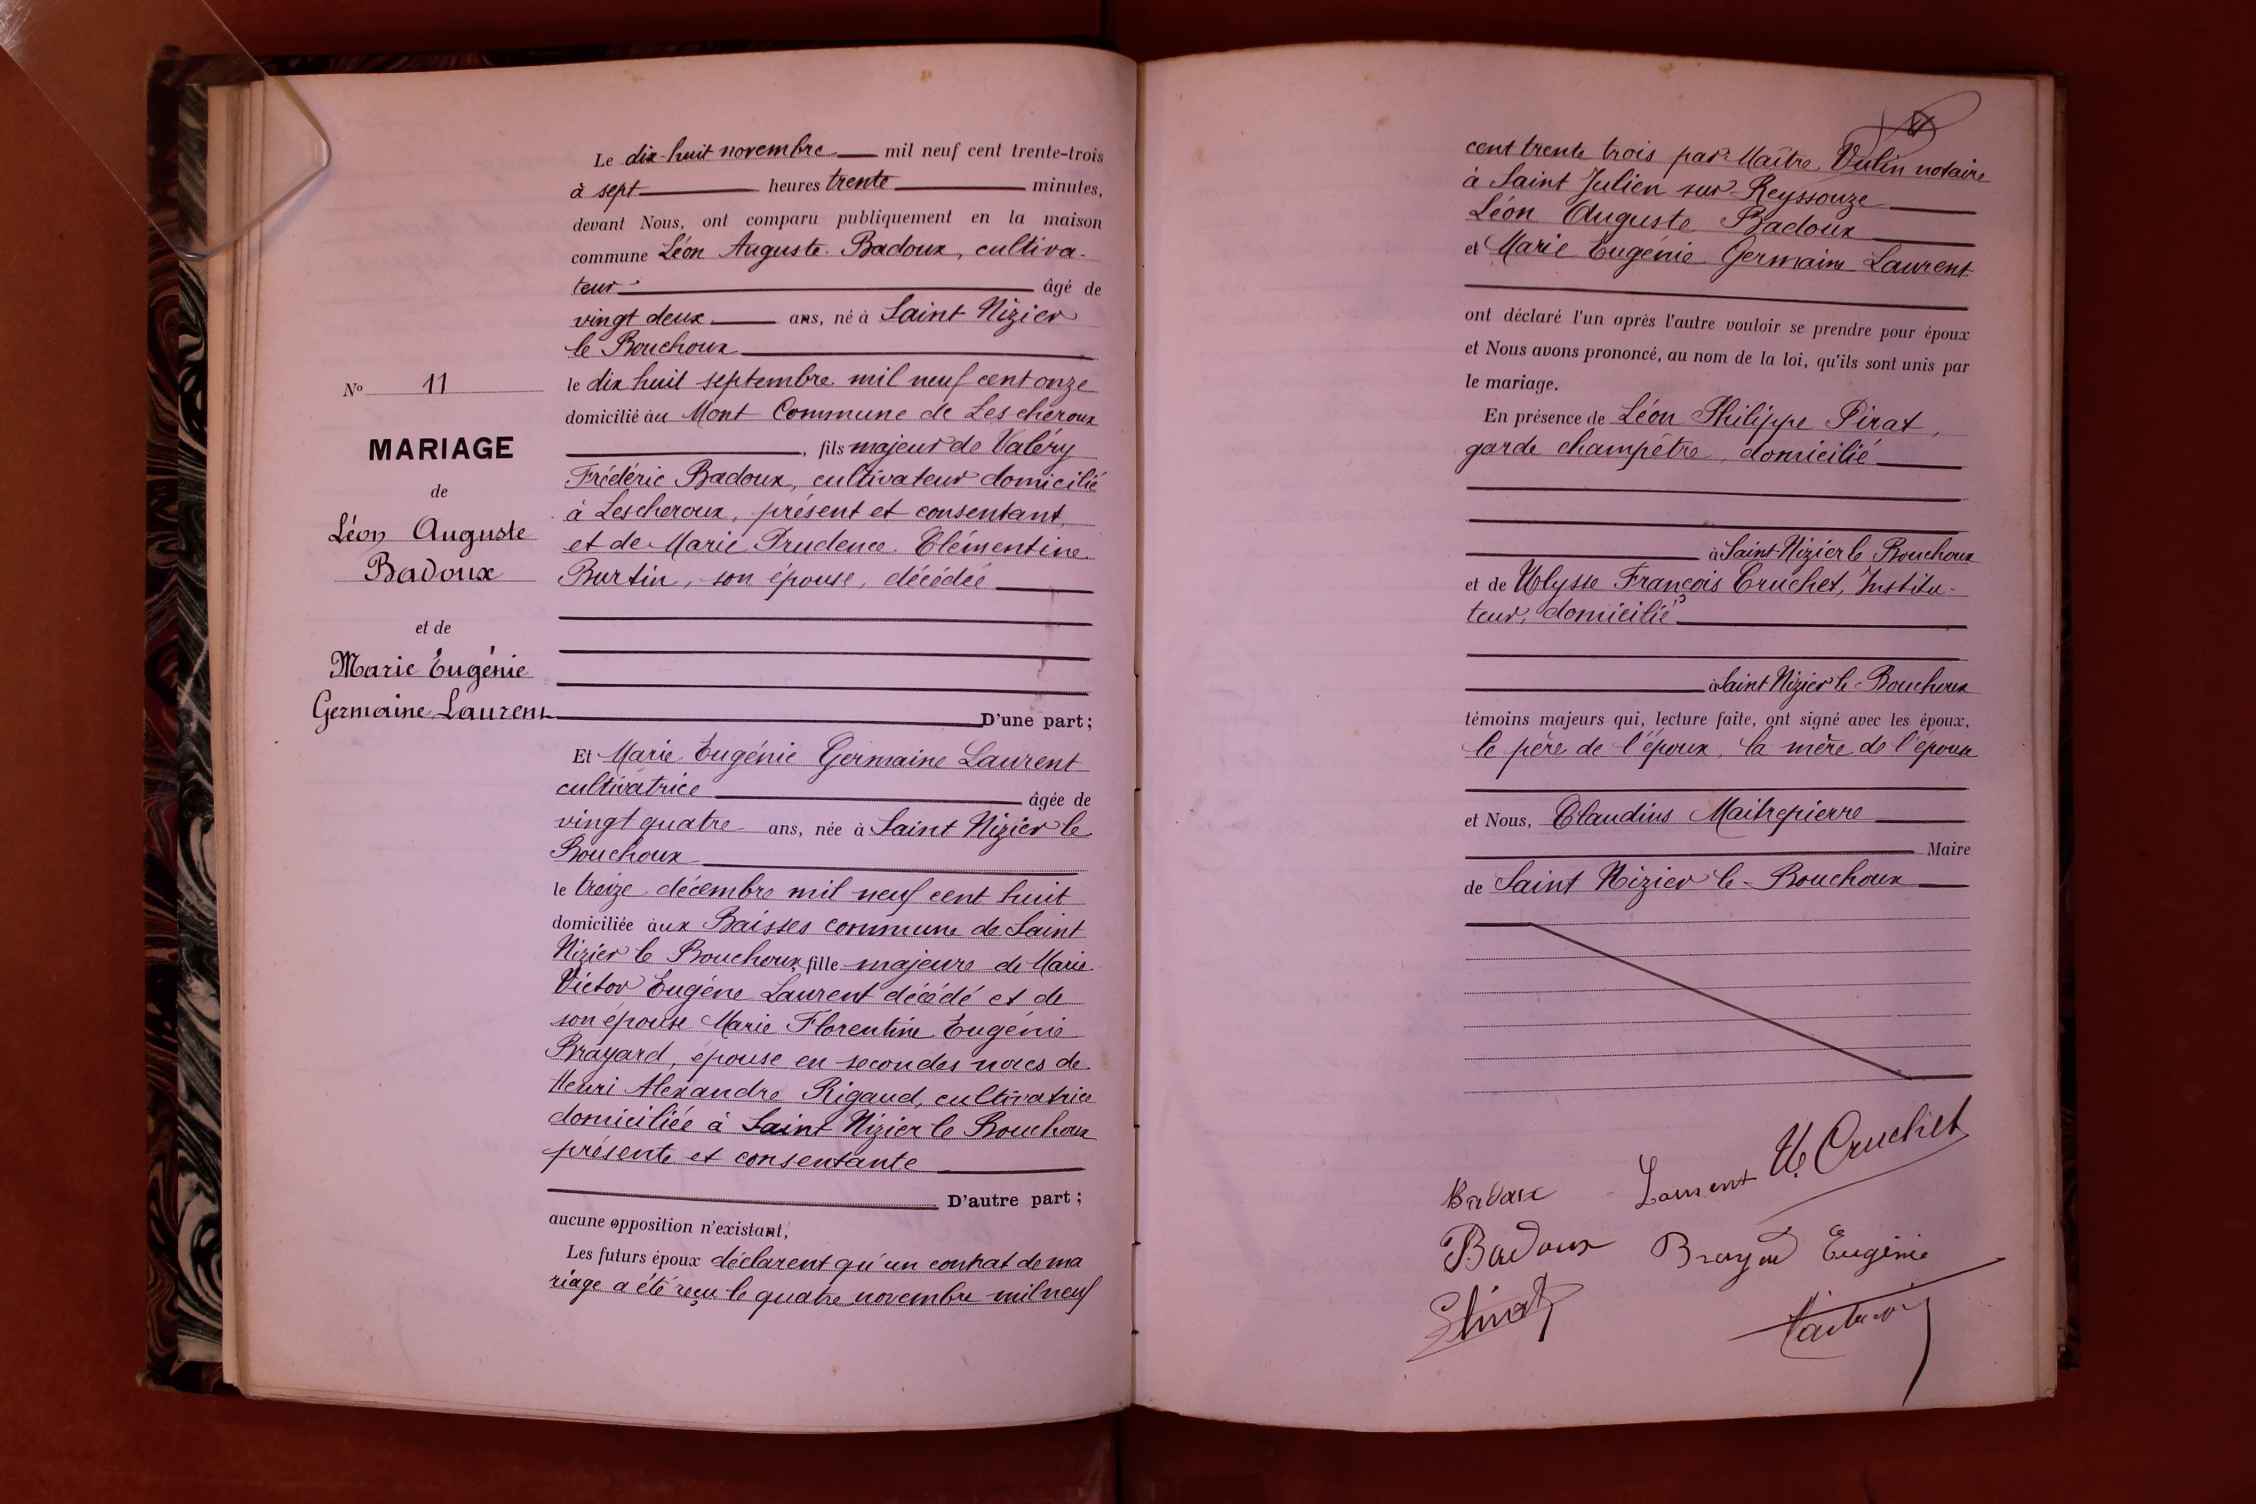 Le dix-huit novembre mil neuf cent trente-trois
à sept heures trente minutes,
devant Nous, ont comparu publiquement en la maison
commune Léon Auguste Badoux, cultiva-
teur âgé de
vingt deux ans, né à Saint Nizier
le Bouchoux
le dix huit septembre mil neuf cent onze
domicilié au Mont Commune de Lescheroux
, fils majeur de Valéry
Frédéric Badoux, cultivateur domicilié
à Lescheroux, présent et consentant,
et de Marie Prudence Clémentine
Burtin, son épouse, décédée
D'une part;
N° 11
MARIAGE
de
Léon Auguste
Badoux
et de
Marie Eugénie
Germaine Laurent
Et Marie Eugénie Germaine Laurent
cultivatrice âgée de
vingt quatre ans, née à Saint Nizier le
Bouchoux
le treize décembre mil neuf cent huit
domiciliée aux Baisses commune de Saint
Nizier le Bouchoux, fille majeure de Marie
Victor Eugéne Laurent décédé et de
son épouse Marie Florentine Eugénie
Brayard, épouse en secondes noces de
Henri Alexandre Rigaud, cultivatrice
domiciliée à Saint Nizier le Bouchoux
présente et consentante
D'autre part;
aucune opposition n'existant,
Les futurs époux déclarent qu'un contrat de ma
riage a été reçu le quatre novembre mil neuf
cent trente trois par Maître Vulin notaire
à Saint Julien sur Reyssouze
Léon Auguste Badoux
et Marie Eugénie Germaine Laurent
ont déclaré l'un après l'autre vouloir se prendre pour époux
et Nous avons prononcé, au nom de la loi, qu'ils sont unis par
le mariage.
En présence de Léon Philippe Pirat,
garde champêtre, domicilié
à Saint Nizier le Bouchoux
et de Ulysse François Cruchet, Institu-
teur, domicilié
à Saint Nizier le-Bouchoux
témoins majeurs qui, lecture faite, ont signé avec les époux,
le père de l'époux, la mère de l'époux
et Nous, Claudius Maitrepierre
Maire
de Saint Nizier le-Bouchoux
Badoux Laurent U. Cruchet
Badoux Brayard Eugénie